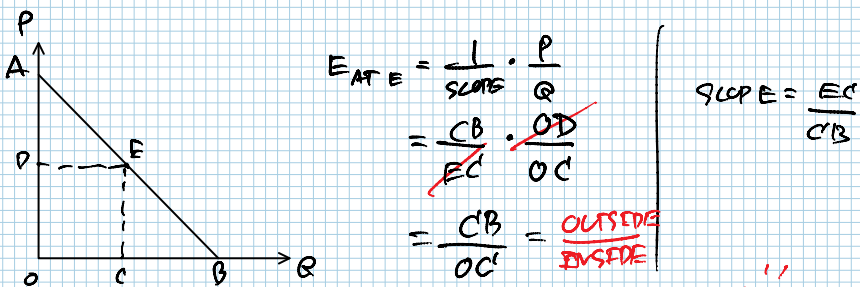 P
A
D
E
O
C
B
Q
E AT E = 1/SLOPE · P/Q
= CB/EC · OD/OC
= CB/OC = OUTSIDE/INSIDE
SLOPE = EC/CB